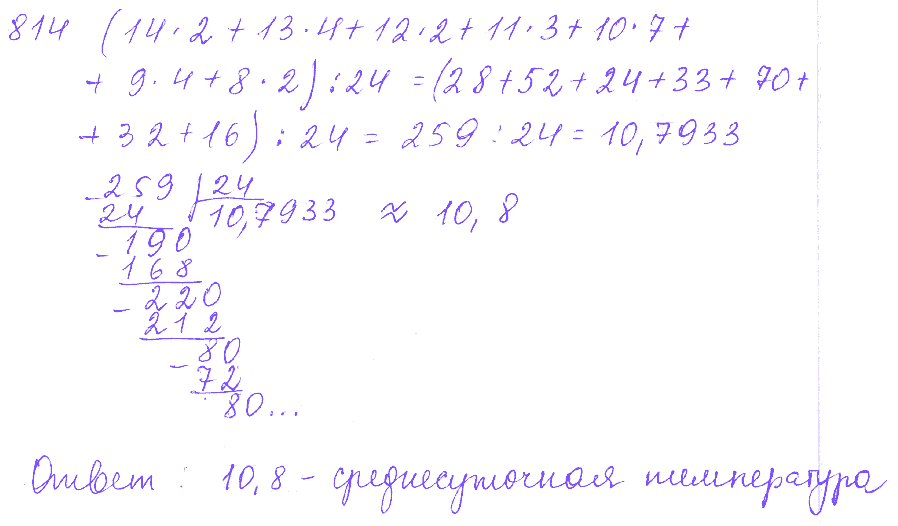 814 (14·2+13·4+12·2+11·3+10·7+
+ 9·4+8·2):24 =(28+52+24+33+70+
+32+16):24 = 259:24=10,7933
-259 24
24 10,7933 ≈ 10,8
-190
168
-220
212
-80
72
80...
Ответ: 10,8 - среднесуточная температура